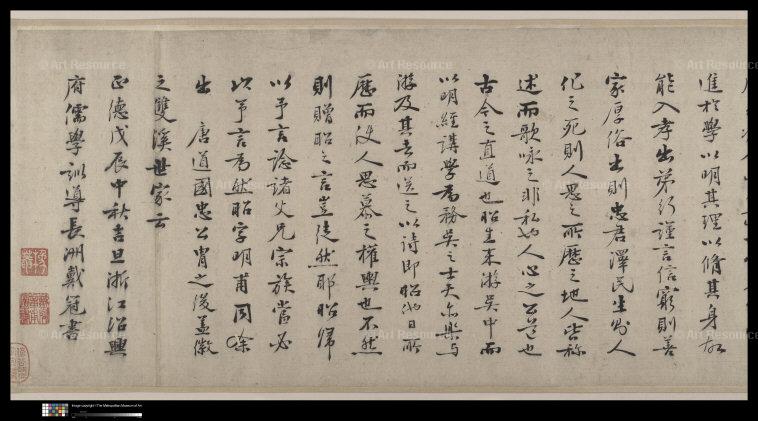 進於學以明其理以脩其身故
能入孝出弟行謹言信窮則善
家厚俗出則忠君澤民生為人
化之死則人思之所歷之地人皆稱
述而歌咏之非私也人心之公是也
古今之直道也昭生来游吳中而
以明經講學為務吳之士夫亦樂与
游及其去而送之以詩即昭他日所
歷而使人思慕之權輿也不然
則贈昭之言豈徒然耶昭歸
以予言諗諸父兄宗族當必
以予言為然昭字明甫同
出 唐道國忠公胄之後盖徽
之雙溪世家云
正德戊辰中秋吉旦浙江紹興
府儒學訓導長洲戴冠書
© Art Resource
© Art Resource
© Art Resource
Image copyright ©The Metropolitan Museum of Art